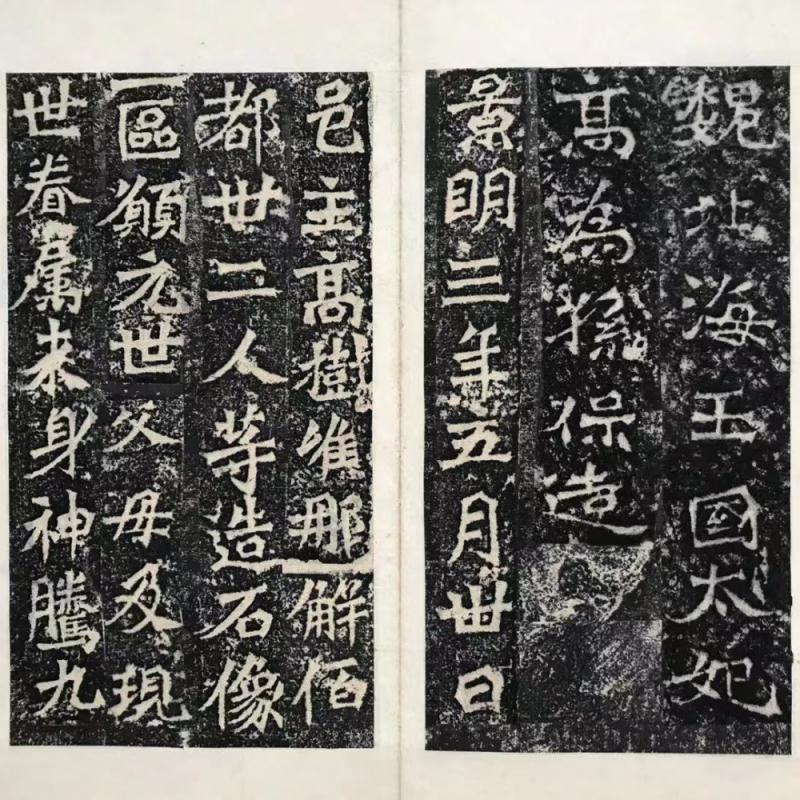 魏北海王國太妃
高為孫保造
景明三年五月卅日
邑主高樹唯那解佰
都卅二人等造石像
一區願元世父母及現
世眷屬来身神騰九